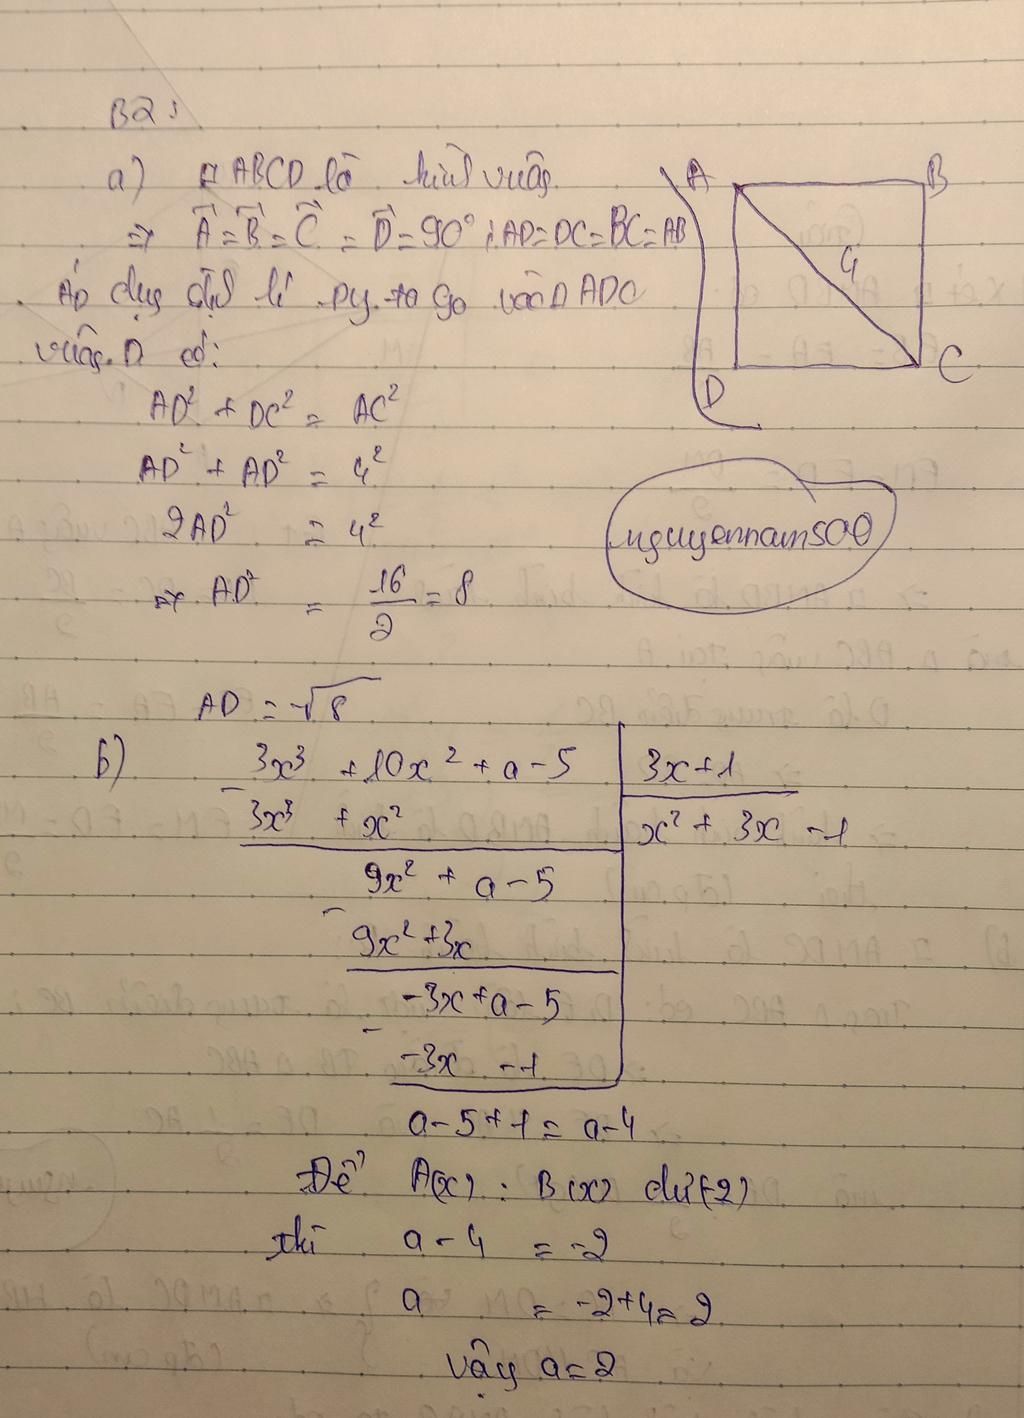 B2:
a) □ ABCD là hình vuông
A B
⇒ A = B = C = D = 90° ; AD=DC=BC=AB
4
Áp dụng định lí py-ta-go vào Δ ADC
vuông D có:
D C
AD² + DC² = AC²
AD² + AD² = 4²
2AD² = 4²
nguyennam500
⇒ AD² = 16/2 = 8
AD = √8
b) 3x³ + 10x² + a - 5 | 3x+1
- 3x³ + x² | x² + 3x - 1
9x² + a - 5
- 9x² + 3x
-3x + a - 5
- -3x - 1
a - 5 + 1 = a - 4
Để A(x) : B(x) dư (-2)
thì a - 4 = -2
a = -2+4 = 2
vậy a = 2